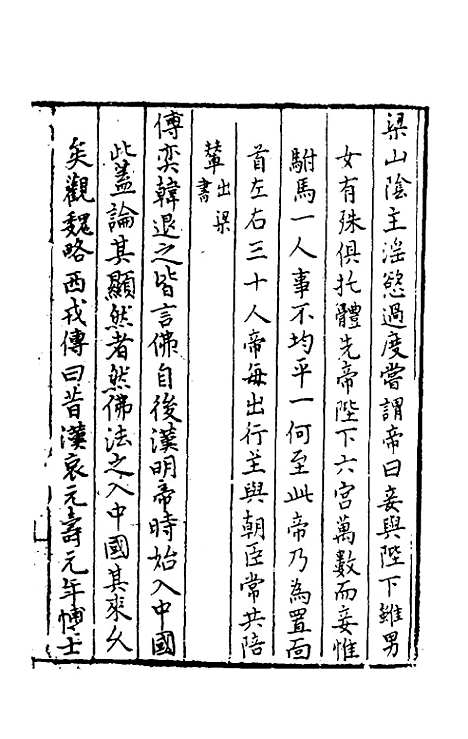 梁山陰主淫慾過度嘗謂帝曰妾與陛下雖男
女有殊俱托體先帝陛下六宮萬數而妾惟
駙馬一人事不均平一何至此帝乃為置面
首左右三十人帝每出行主與朝臣常共陪
輦出梁
書
傅奕韓退之皆言佛自後漢明帝時始入中國
此蓋論其顯然者然佛法之入中國其來久
矣觀魏略西戎傳曰昔漢哀元壽元年博士